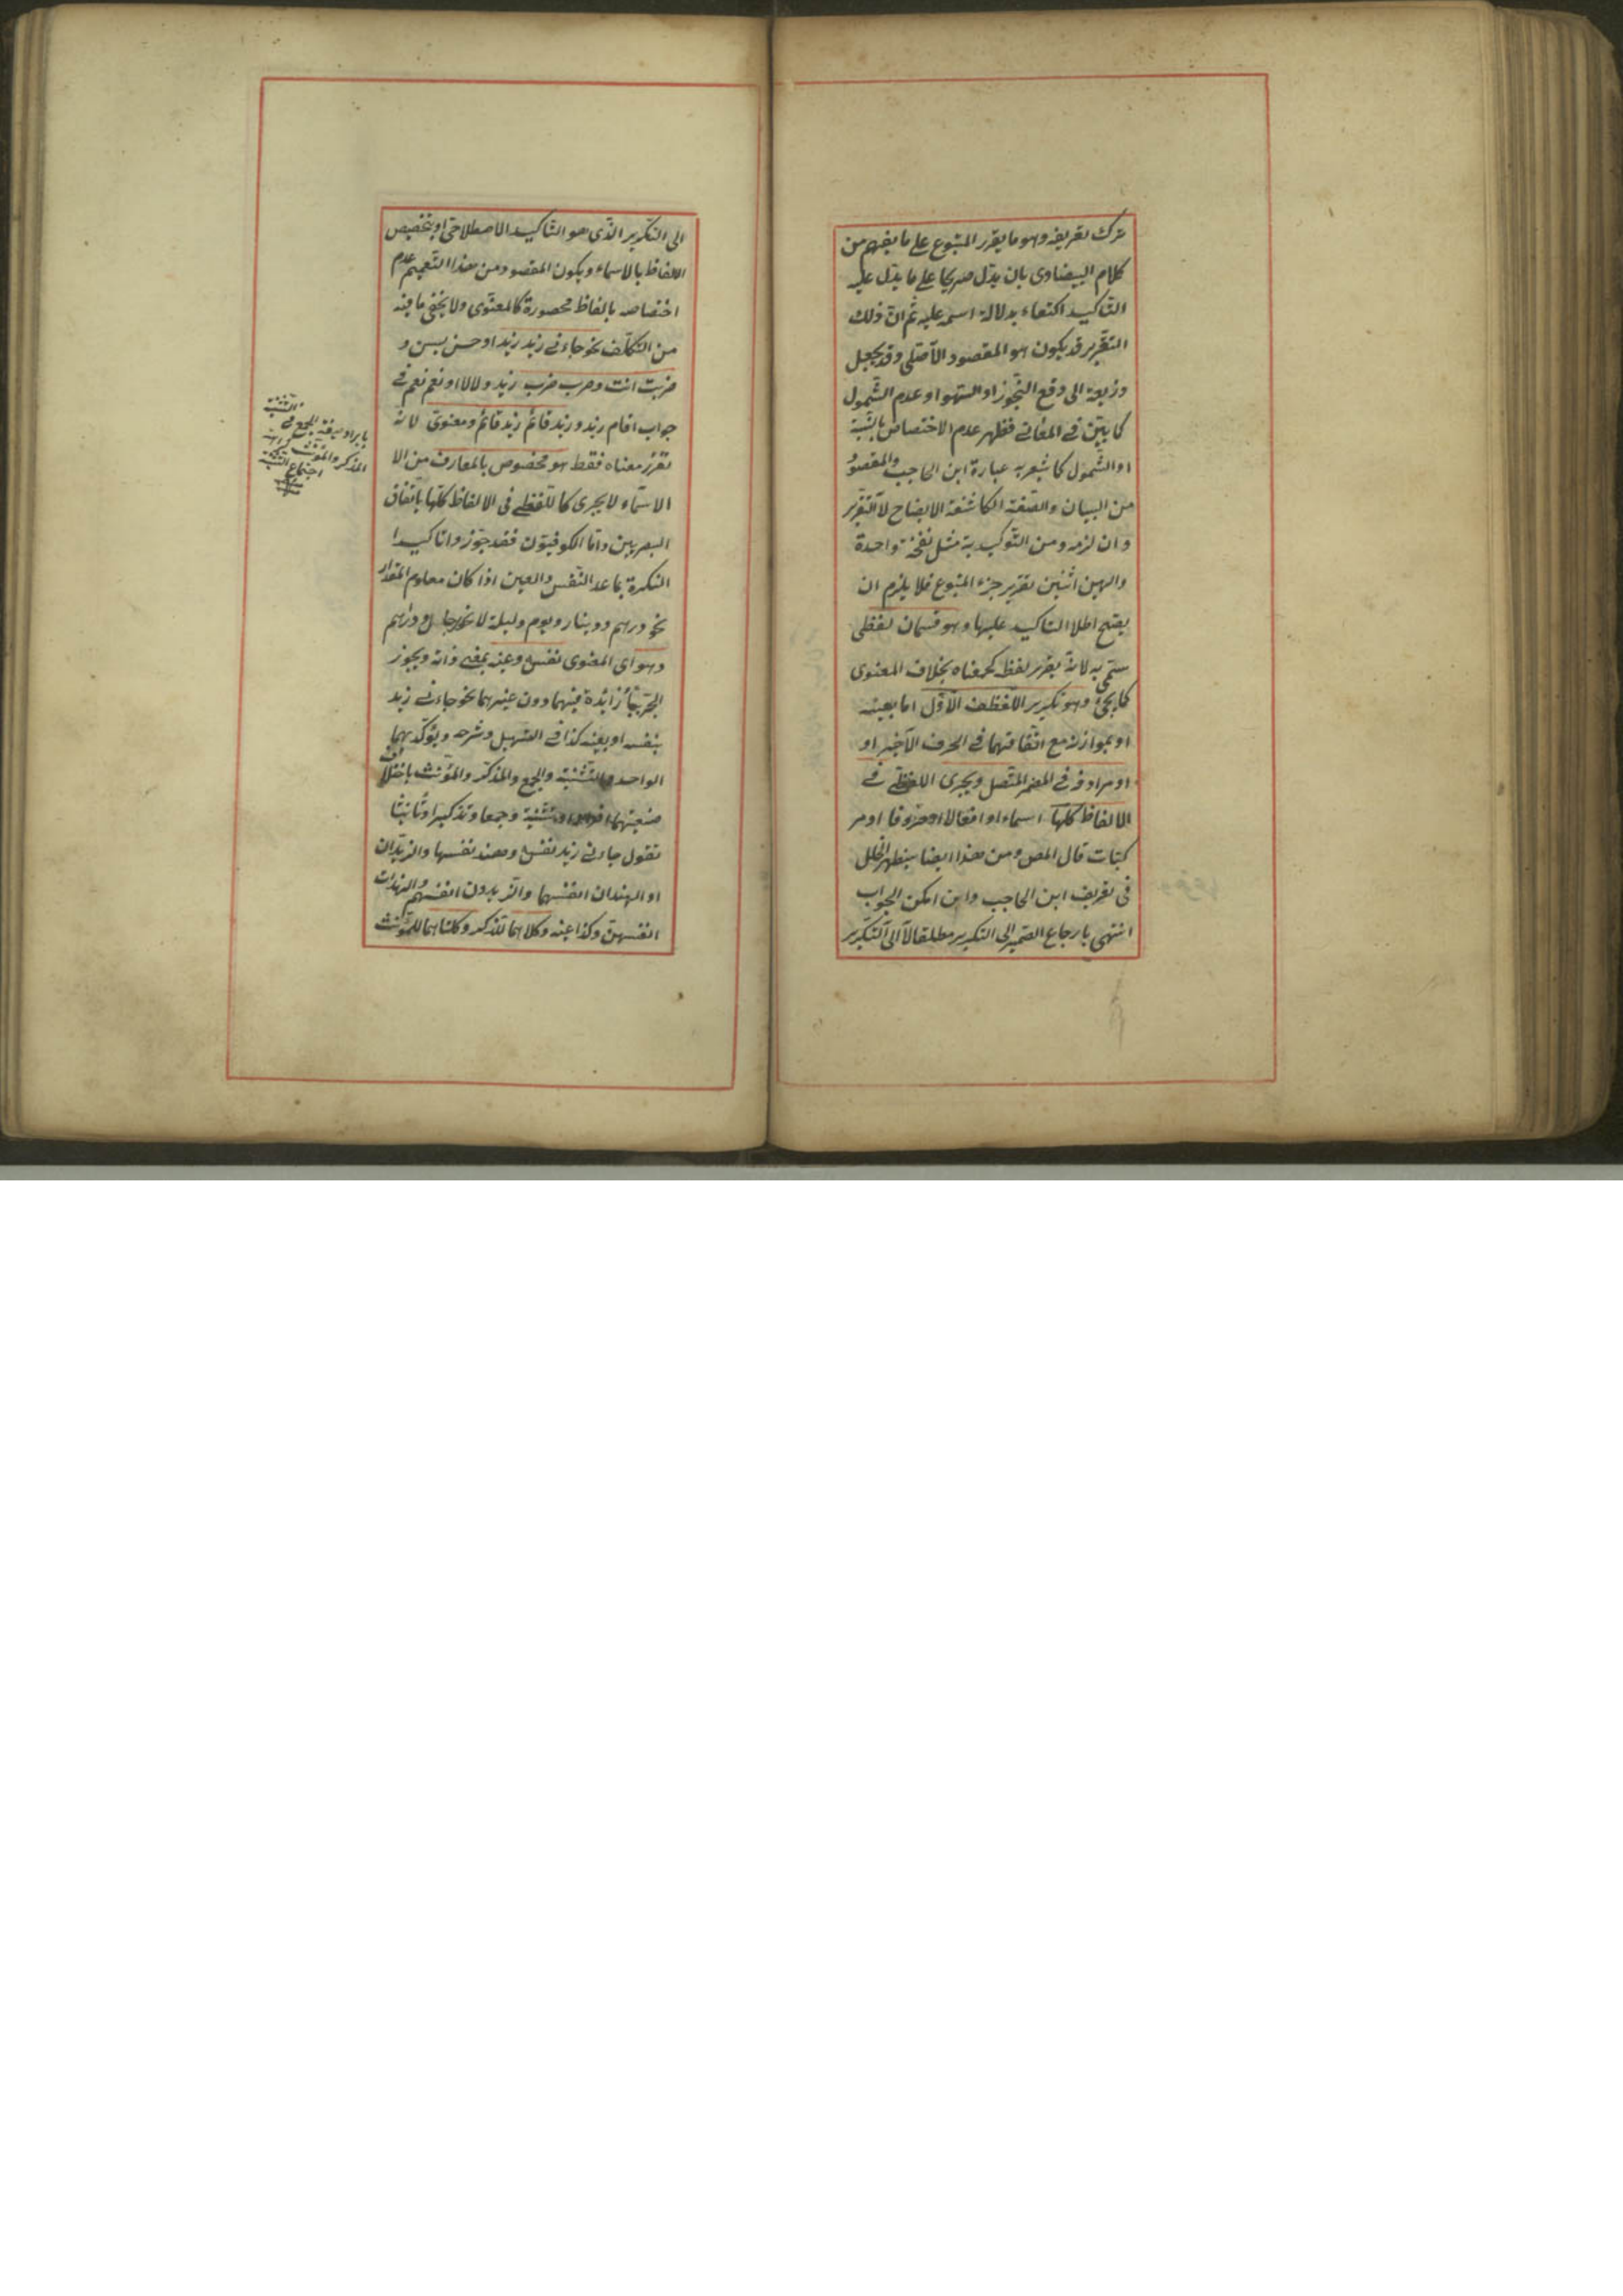 ترك تعريفه وهو ما يقرر المتبوع على ما يفهم من
كلام البيضاوى بان يدل صريحا على ما يدل عليه
التاكيد اكتفاء بدلالة اسمه عليه ثم ان ذلك
التقرير قد يكون هو المقصود الاصلى وقد يجعل
وذريعة الى دفع التجوز او السهو او عدم الشمول
كما بين فى المعانى فظهر عدم الاختصاص بالنسبة
او الشمول كما يشعر به عبارة ابن الحاجب والمقصود
من البيان والصفة الكاشفة الايضاح لا التقرير
وان لزمه ومن التوكيد به مثل نفخة واحدة
والهين اثنين تقرير جزء المتبوع فلا يلزم ان
يصح اطلا التاكيد عليها وهو قسمان لفظى
سمى به لانه يقرر لفظه كمعناه بخلاف المعنوى
كما يجئ وهو تكرير اللفظ الاول اما بعينه
او بموازنه مع اتفاقهما فى الحرف الاخير او
او مرادفه فى المضمر المتصل ويجرى اللفظى فى
الالفاظ كلها اسماء او افعالا او حروفا او مر
كبات قال المص ومن هذا ايضا يظهر الخلل
فى تعريف ابن الحاجب وان امكن الجواب
انتهى بارجاع الضمير الى التكرير مطلقا لا الى التكرير
الى التكرير الذى هو التاكيد الاصطلاحى او بتخصيص
الالفاظ بالاسماء ويكون المقصود من هذا التعميم عدم
اختصاصه بالفاظ محصورة كالمعنوى ولا يخفى ما فيه
من التكلف نحو جاءنى زيد زيد او حسن بسن و
ضربت انت وضرب ضرب زيد ولا لا او نعم نعم فى
جواب اقام زيد وزيد قائم زيد قائم ومعنوى لانه
تقرر معناه فقط هو مخصوص بالمعارف من الا
الاسماء لا يجرى كاللفظى فى الالفاظ كلها باتفاق
البصريين واما الكوفيون فقد جوزوا تاكيد
النكرة بما عدا النفس والعين اذا كان معلوم المقدار
نحو درهم ودينار ويوم وليلة لا نحو رجال ودراهم
وهو اى المعنوى نفسه وعينه بمعنى ذاته ويجوز
الجر بباء زائدة فيهما دون غيرهما نحو جاءنى زيد
بنفسه او بعينه كذا فى التسهيل وشرحه ويؤكد بهما
الواحد والتثنية والجمع والمذكر والمؤنث باختلاف
صيغتهما افرادا وتثنية وجمعا وتذكيرا وتأنيثا
تقول جاءنى زيد نفسه وهند نفسها والزيدان
او الهندان انفسهما والزيدون انفسهم والهندات
انفسهن وكذا عينه وكلاهما للمذكر وكلتاهما للمؤنث
التثنية
الجمع فى
المذكر والمؤنث
اجتماع التثنية